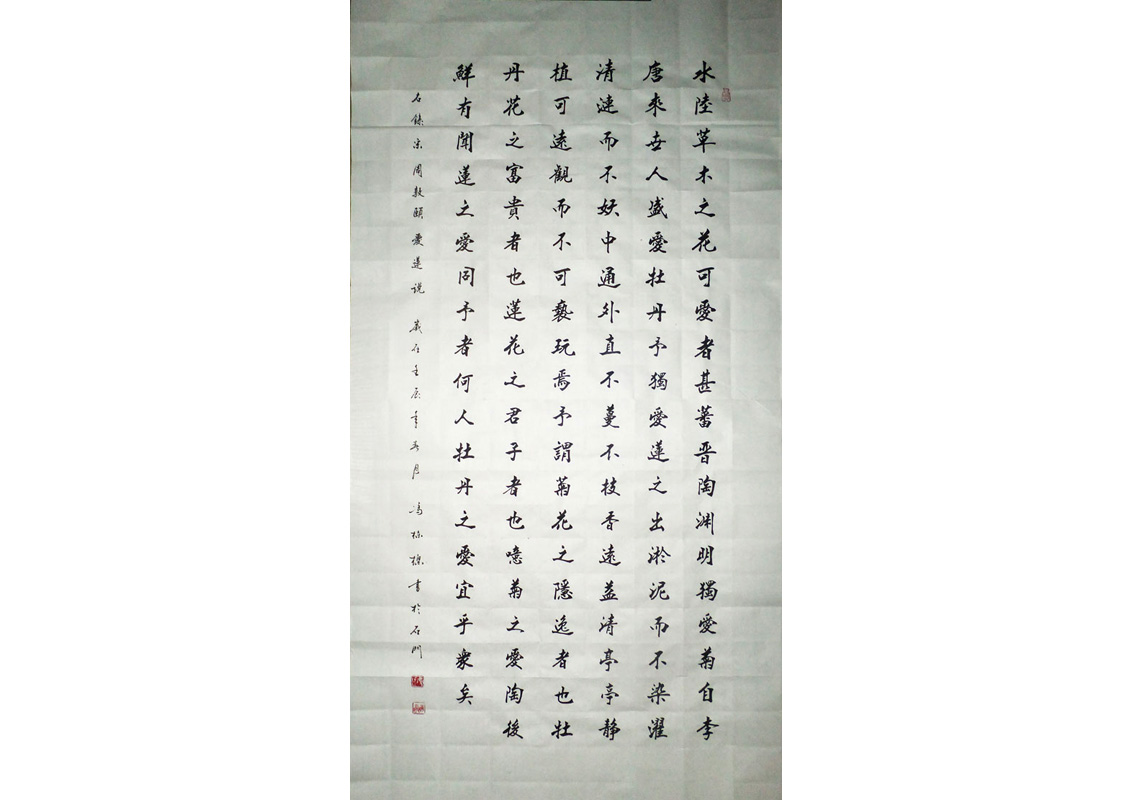 水陸草木之花可愛者甚蕃晋陶渊明獨愛菊自李
唐來世人盛愛牡丹予獨愛蓮之出淤泥而不染濯
清漣而不妖中通外直不蔓不枝香遠益清亭亭静
植可遠觀而不可褻玩焉予謂菊花之隱逸者也牡
丹花之富貴者也蓮花之君子者也噫菊之愛陶後
鮮有聞蓮之愛同予者何人牡丹之愛宜乎衆矣
右錄宋周敦頤愛蓮说 歲在壬辰年春月 冯 書於石門